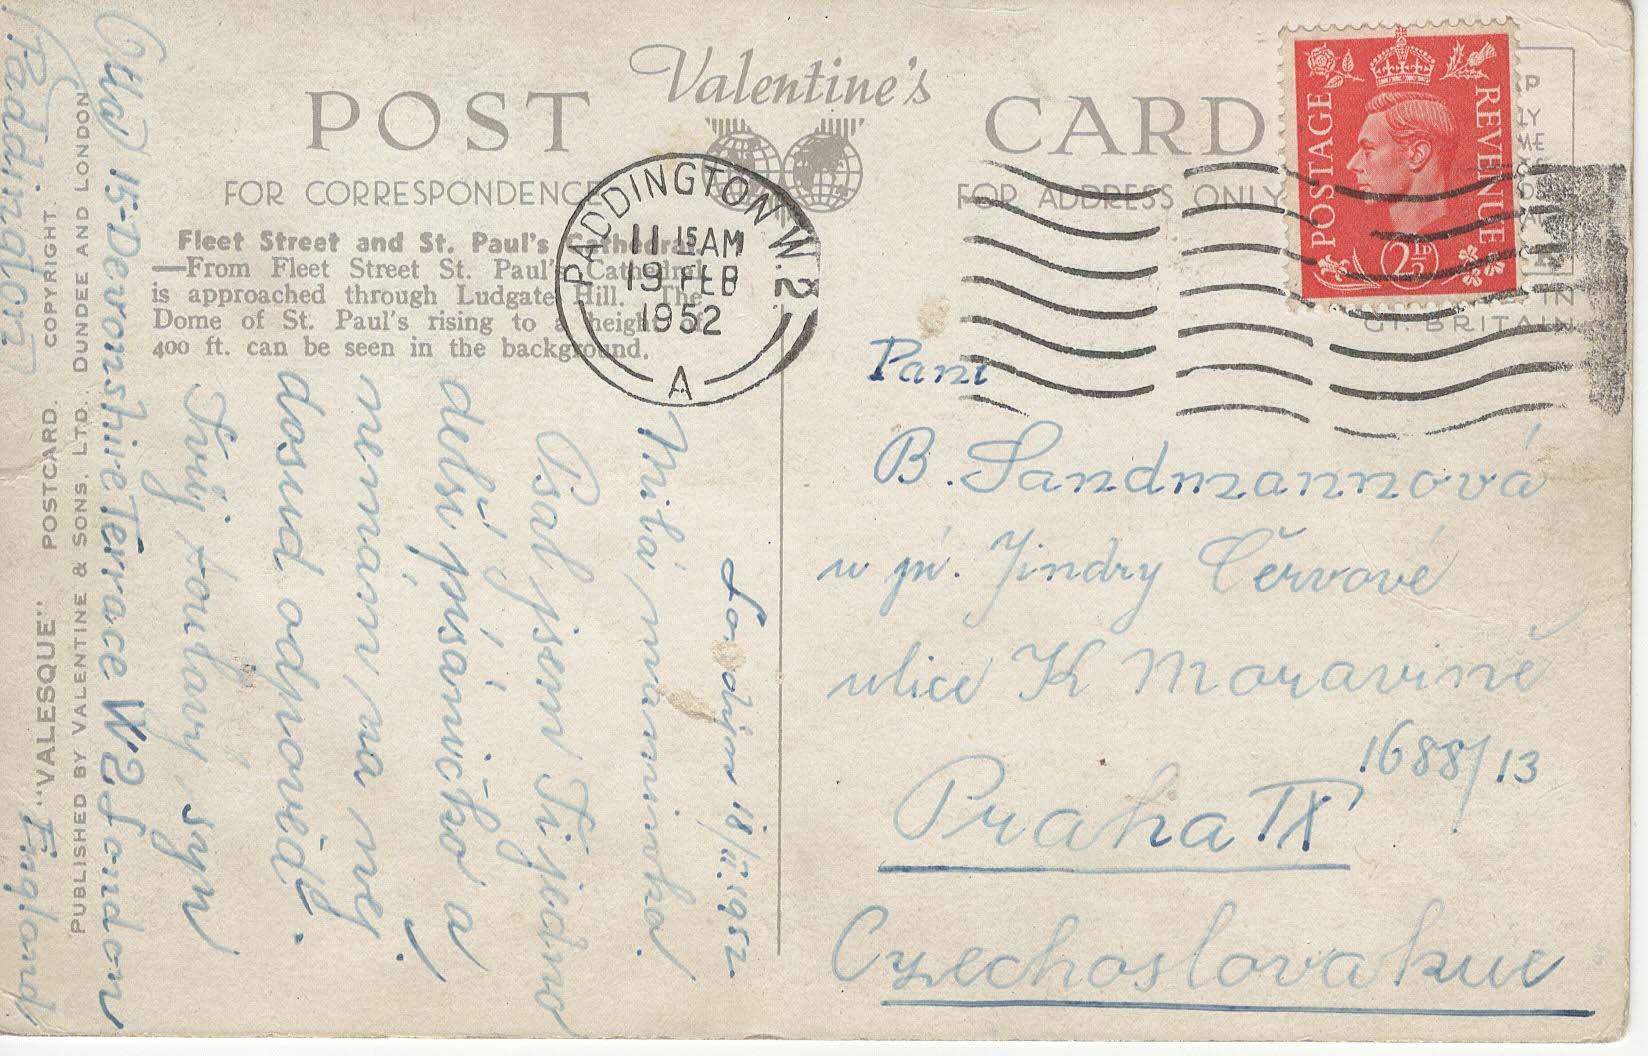 Valentine's
POST CARD
FOR CORRESPONDENCE
FOR ADDRESS ONLY
Fleet Street and St. Paul's Cathedral
—From Fleet Street St. Paul's Cathedral
is approached through Ludgate Hill. The
Dome of St. Paul's rising to a height
400 ft. can be seen in the background.
PADDINGTON W.2
11 15 AM
19 FEB
1952
A
POSTAGE
REVENUE
2½D
IN
GT. BRITAIN
Paní
B. Sandmannová
u pí. Jindry Červové
ulice K Moravině
1688/13
Praha IX
Czechoslovakue
Londýn 18/II.1952.
Milá maminko!
Psal jsem Ti jedno
delší psáníčko a
nemám na něj
dosud odpověď.
Tvůj toulavý syn
Ota
15-Devonshire Terrace W2 London
Paddington
England
"VALESQUE" POSTCARD. COPYRIGHT.
PUBLISHED BY VALENTINE & SONS, LTD., DUNDEE AND LONDON